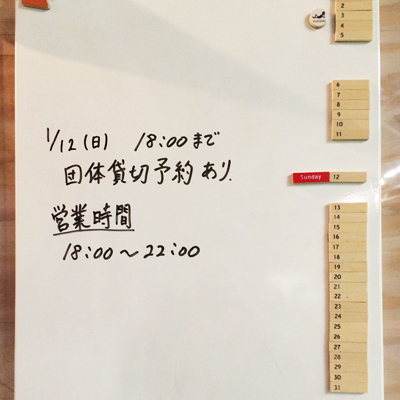 1/12(日) 18:00まで
団体貸切予約あり.
営業時間
18:00〜22:00
2
3
4
5
6
7
8
9
10
11
Sunday 12
13
14
15
16
17
18
19
20
21
22
23
24
25
26
27
28
29
30
31